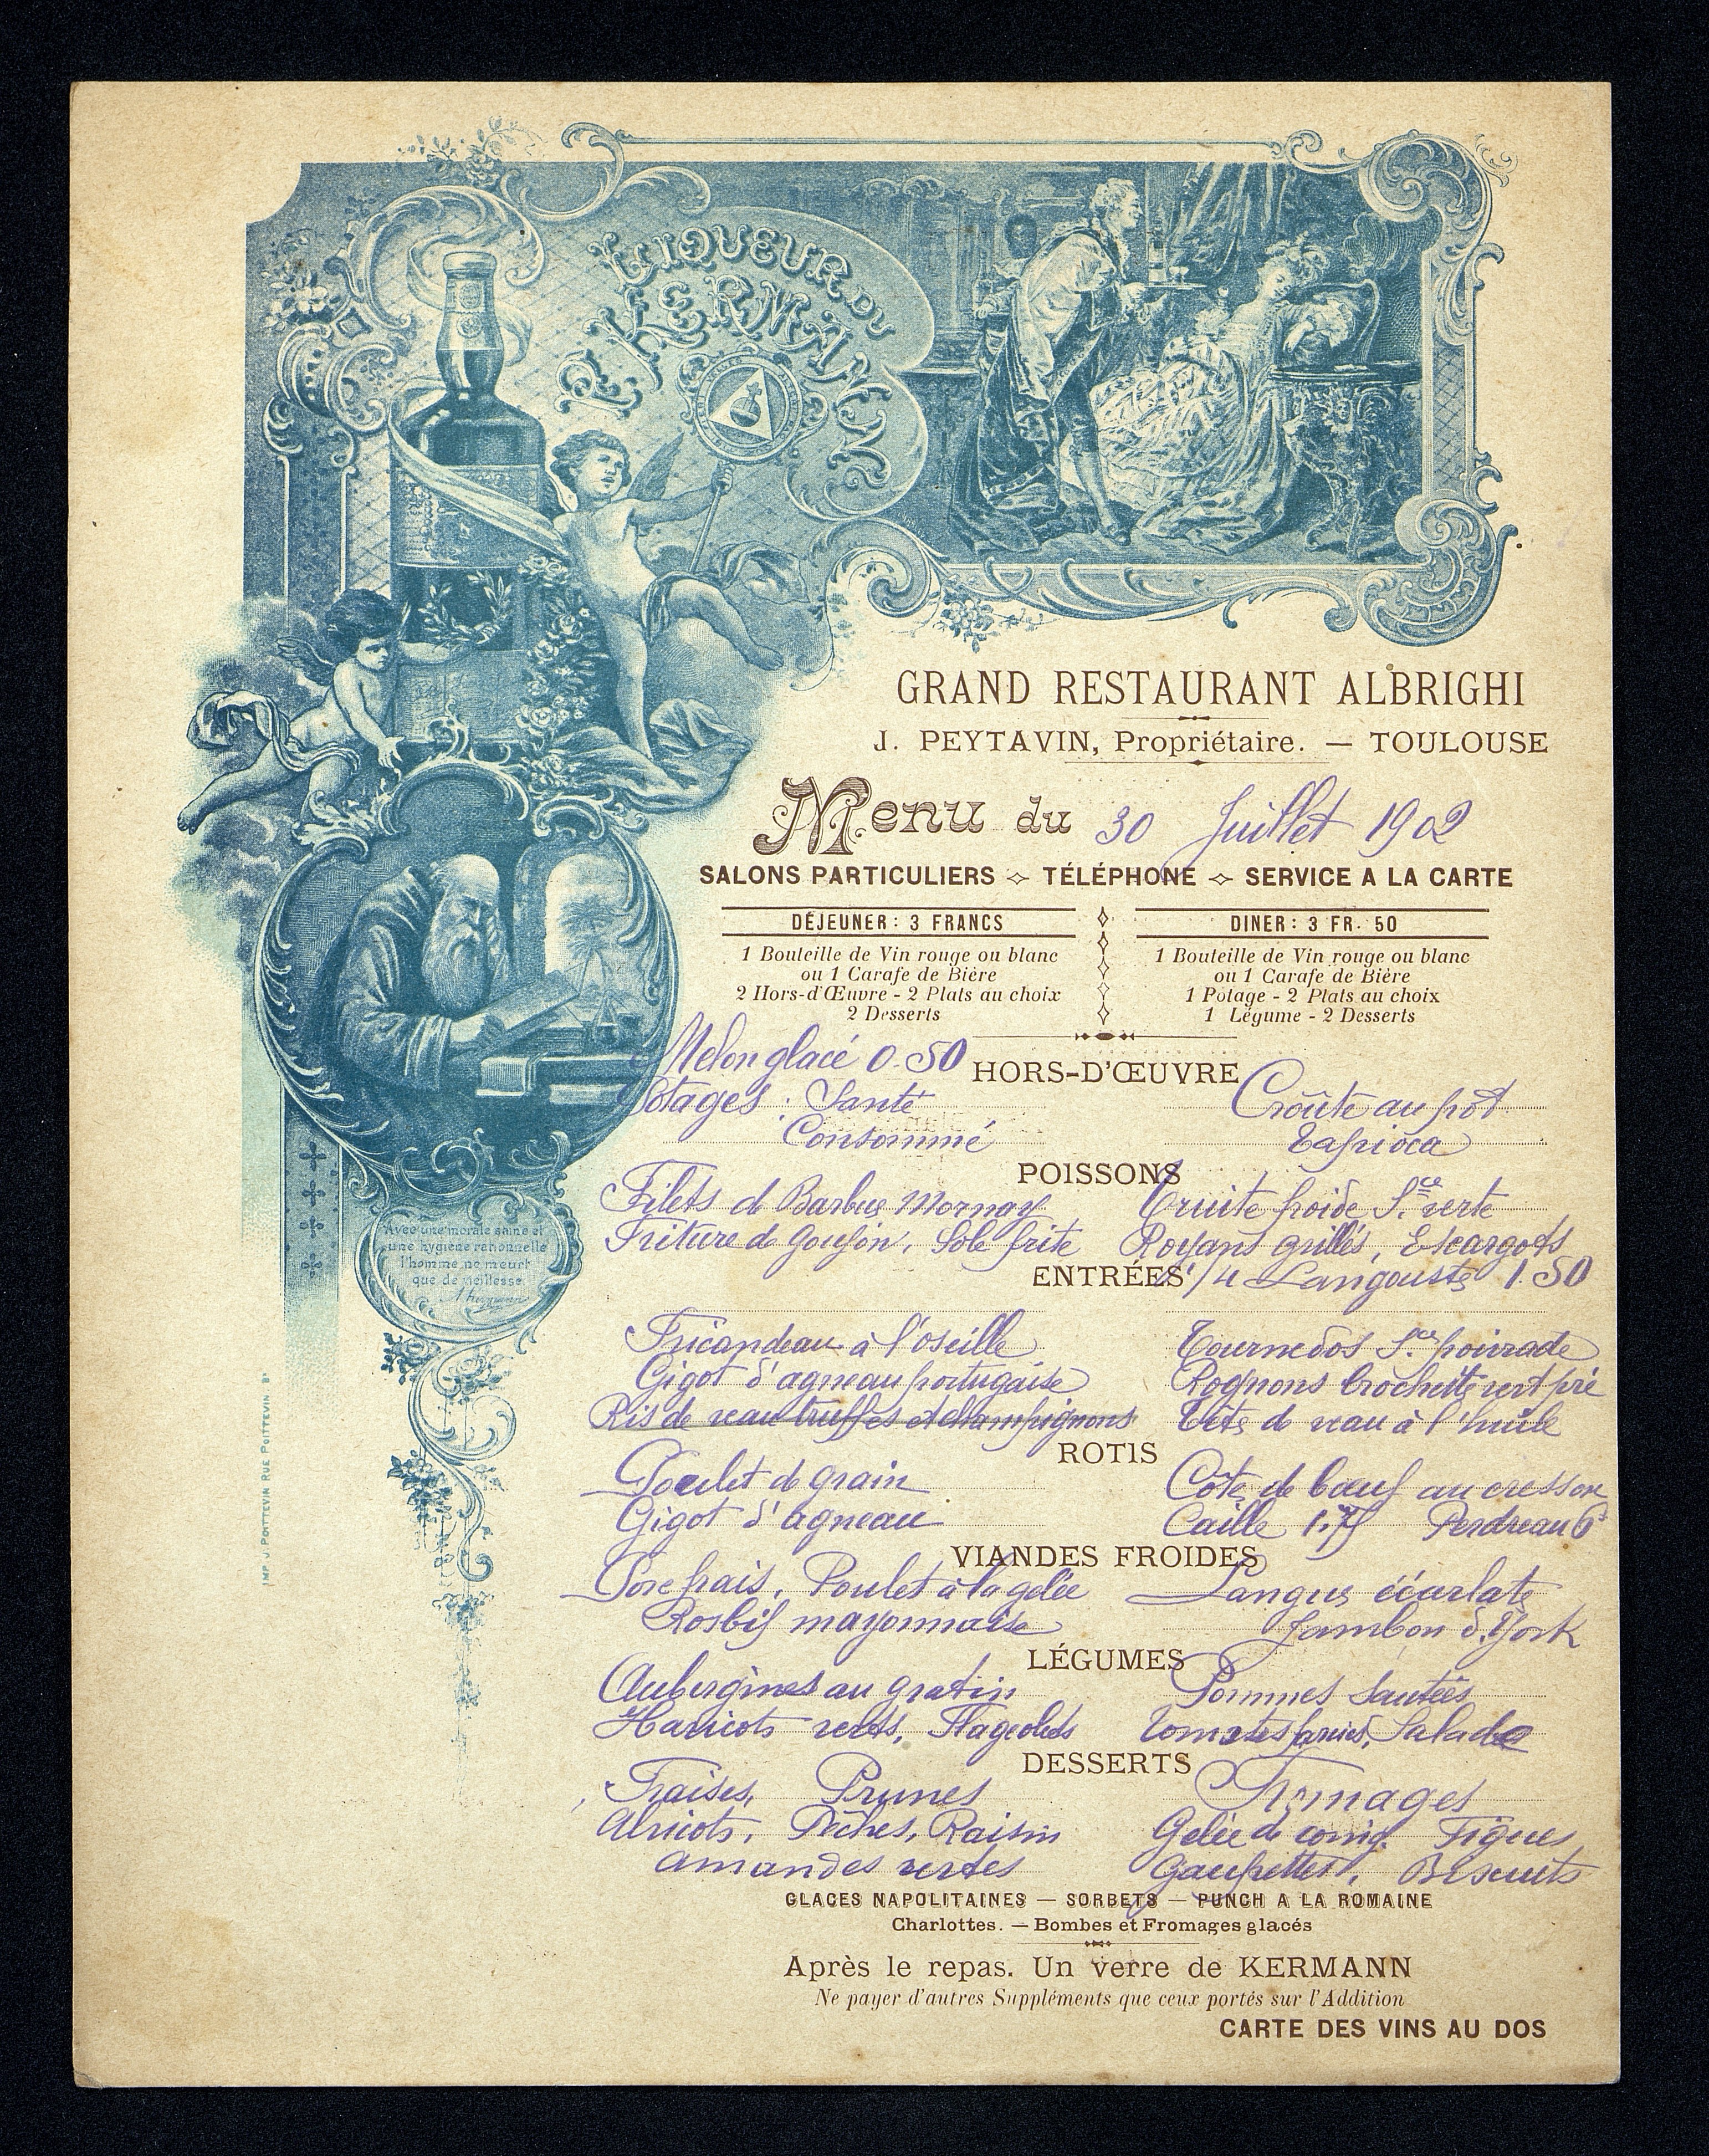 LIQUEUR DU
P. KERMANN
GRAND RESTAURANT ALBRIGHI
J. PEYTAVIN, Propriétaire. — TOULOUSE
Menu du 30 Juillet 1902
SALONS PARTICULIERS ⟡ TÉLÉPHONE ⟡ SERVICE A LA CARTE
DÉJEUNER : 3 FRANCS
1 Bouteille de Vin rouge ou blanc
ou 1 Carafe de Bière
2 Hors-d'Œuvre - 2 Plats au choix
2 Desserts
DINER : 3 FR. 50
1 Bouteille de Vin rouge ou blanc
ou 1 Carafe de Bière
1 Potage - 2 Plats au choix
1 Légume - 2 Desserts
Melon glacé 0.50
HORS-D'ŒUVRE
Potages : Santé Croûte au pot
Consommé Tapioca
POISSONS
Filets d Barbue Mornay Truite froide Sce verte
Friture de Goujon, Sole frite Royans grillés, Escargots
ENTRÉES 1/4 Langouste 1.50
Fricandeau à l'oseille Tournedos Sce poivrade
Gigot d'agneau portugaise Rognons Brochette vert pré
Ris de veau truffes et champignons Tête de veau à l'huile
ROTIS
Poulet de grain Côte de bœuf au cresson
Gigot d'agneau Caille 1.75 Perdreau 6f
VIANDES FROIDES
Porc frais, Poulet à la gelée Langue écarlate
Rosbif mayonnaise Jambon d'York
LÉGUMES
Aubergines au gratin Pommes Sautées
Haricots verts, Flageolets Tomates farcies, Salade
DESSERTS
Fraises, Prunes Fromages
Abricots, Pêches, Raisin Gelée de coing Figues
Amandes vertes Gaufrettes, Biscuits
GLACES NAPOLITAINES — SORBETS — PUNCH A LA ROMAINE
Charlottes. — Bombes et Fromages glacés
Après le repas. Un verre de KERMANN
Ne payer d'autres Suppléments que ceux portés sur l'Addition
CARTE DES VINS AU DOS
Avec une morale saine et
une hygiène rationnelle
l'homme ne meurt
que de vieillesse
IMP. J. POITTEVIN RUE POITTEVIN Bx